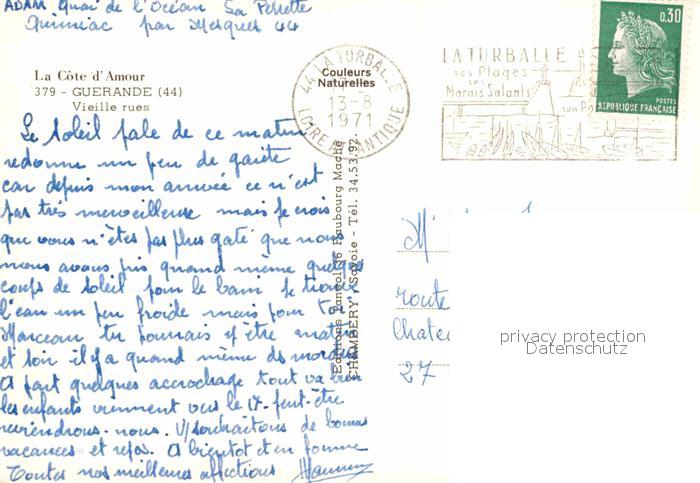 ADAM Quai de l'Océan La Perrette
Quimiac par Mesquer 44
La Côte d'Amour
379 - GUERANDE (44)
Vieille rues
Couleurs
Naturelles
44 LA TURBALLE
13-8
1971
LOIRE ATLANTIQUE
LA TURBALLE
ses Plages
ses
Marais Salants
son Po
0.30
POSTES
REPUBLIQUE FRANÇAISE
Le soleil pale de ce matin
redonne un peu de gaieté
car depuis mon arrivée ce n'est
pas très merveilleuse mais je crois
que vous n'êtes pas plus gaté que nous
nous avons pris quand même quelques
coups de soleil pour le bain je trouve
l'eau un peu froide mais pour toi
Marceau tu pourrais y être matin
et soir il y a quand même des mordus
A part quelques accrochage tout va bien
les enfants viennent vers le 17. peut-être
reviendrons-nous. Vs souhaitons de bonnes
vacances et repos. A bientôt et en forme
Toutes nos meilleures affections
36 Faubourg Maché
CHAMBERY - Savoie - Tél. 34.53.92.
M
route
Chate
27
privacy protection
Datenschutz